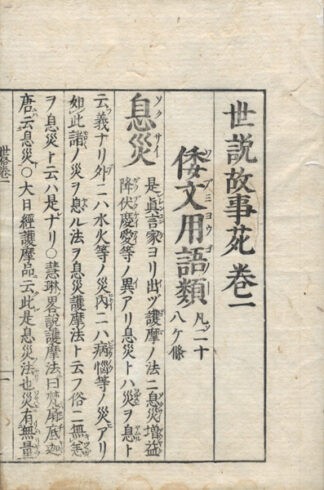 世説故事苑巻二
倭文用語類 凡二十
八ケ條
息災 ソクサイ 是眞言家ヨリ出ヅ護摩ノ法ニ息災増益
降伏慶愛等ノ異アリ息災トハ災ヲ息ト
云義ナリ外ニハ水火等ノ災内ニハ病惱等ノ災アリ
如此諸ノ災ヲ息ル法ヲ息災護摩法ト云フ俗ニ無
ヲ息災ト云ハ是ナリ○慧琳畧説護摩法曰扇底迦
唐云息災○大日經護摩品云此是息災法也災有無量